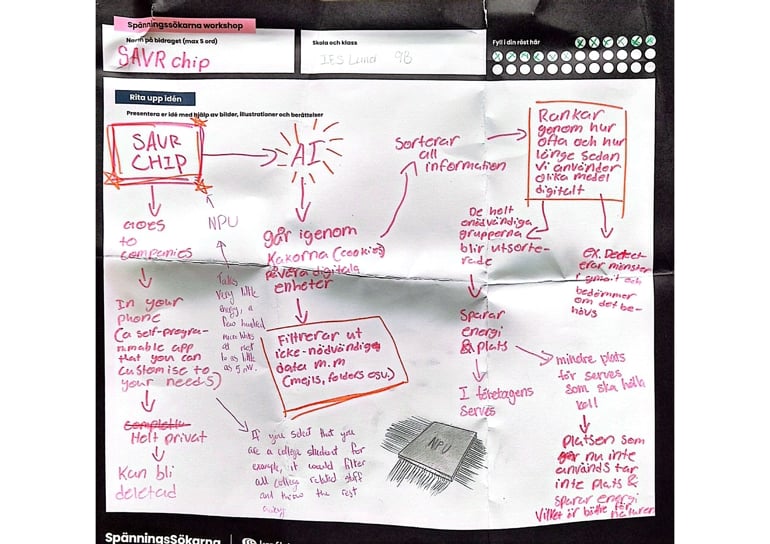 Spänningssökarna workshop
Namn på bidraget (max 5 ord)
SAVR chip
Skola och klass
IES Lund 9B
Fyll i din röst här
Rita upp idén
Presentera er idé med hjälp av bilder, illustrationer och berättelser
SAVR
CHIP
AI
Sorterar
all
information
Rankar
genom hur
ofta och hur
länge sedan
vi använder
olika medel
digitalt
goes
to
companies
NPU
går igenom
kakorna (cookies)
på våra digitala
enheter
De helt
onödvändiga
grupperna
blir utsorte-
rade
ex. Detect
erar mönster
i gmail och
bedömmer
om det be-
hövs
In your
phone
(a self-progra-
mmable app
that you can
customise to
your needs)
Takes
very little
energy, a
few hundred
micro watts
as
to as little
as 5
Filtrerar ut
icke-nödvändiga
data m.m
(mejls, folders osv.)
Sparar
energi
& plats
mindre plats
för serves
som ska hålla
koll
I företagens
serves
Helt privat
Kan bli
deletad
If you select that you
are a college student for
example, it would filter
all college related stuff
and throw the rest
away
NPU
platsen som
nu inte
används tar
inte plats &
sparar energi
Vilket är bättre för naturen
SpänningsSökarna